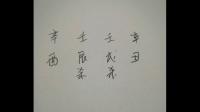 辛 壬 壬 辛
酉 辰 戌 丑
杀 杀